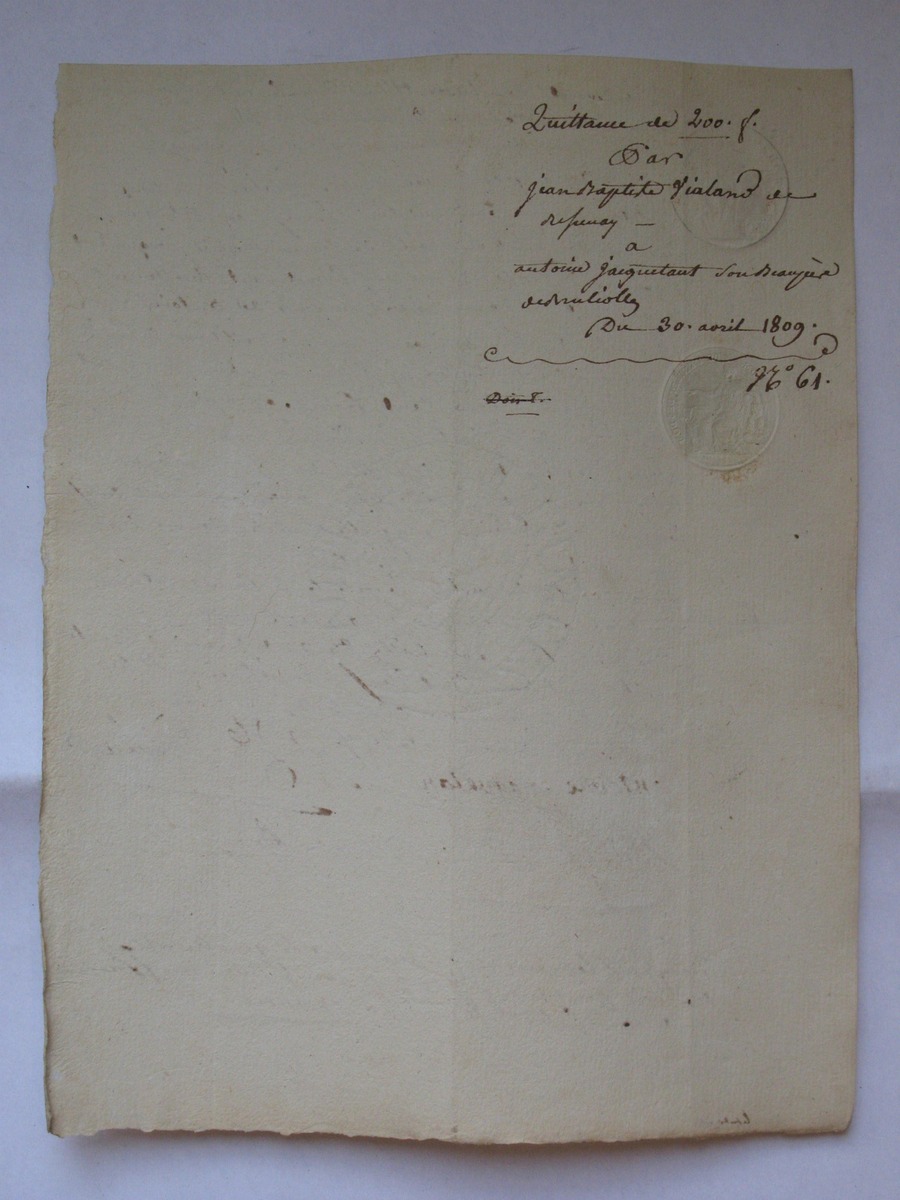 Quittance de 200. f.
Par
jean Baptiste Vialand de
a
antoine jacquetant Son Beaupère
Du 30. avril 1809.
N.° 61.
Doit